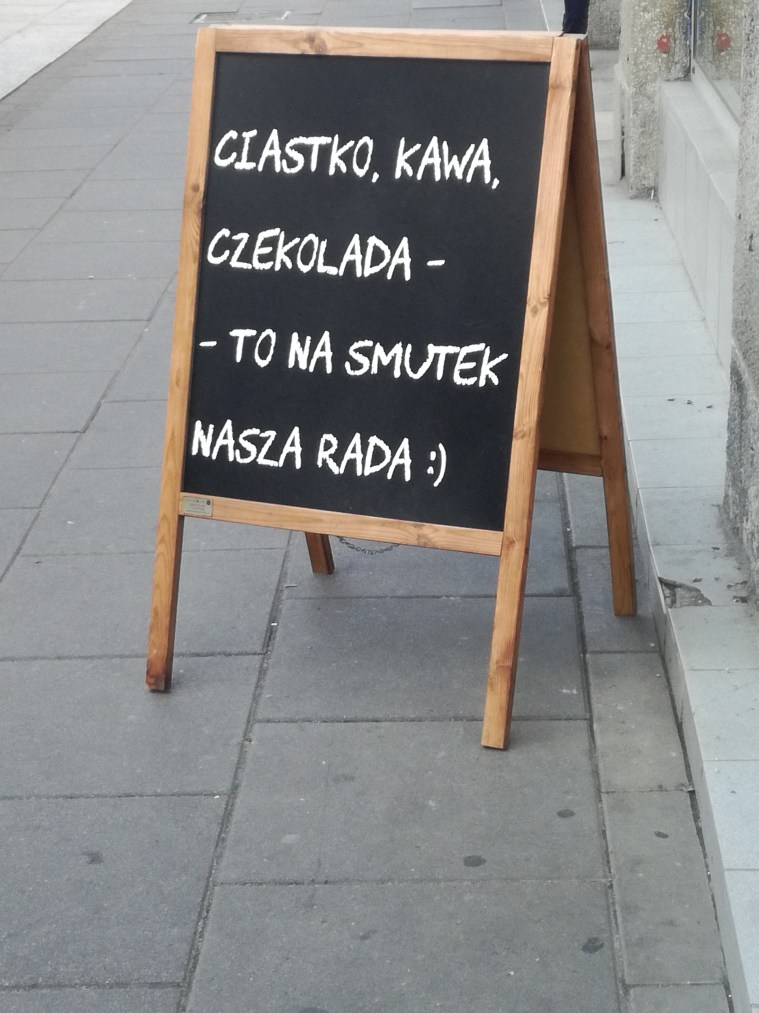 CIASTKO, KAWA,
CZEKOLADA -
- TO NA SMUTEK
NASZA RADA :)